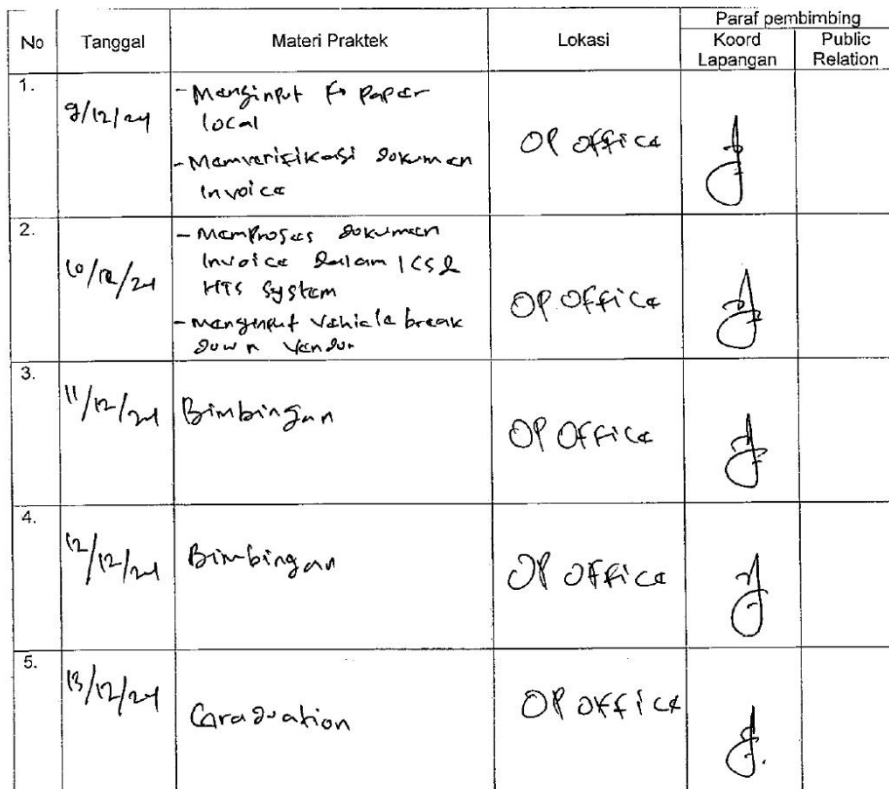 No Tanggal Materi Praktek Lokasi Paraf pembimbing
Koord Lapangan Public Relation
1. 9/12/24 - Menginput Fo paper
local
- Memverifikasi dokumen
Invoice
OP office
2. 10/12/24 - Memproses dokumen
Invoice dalam ICS &
HTS System
- menginput vehicle break
down vendor
OP OFFice
3. 11/12/24 Bimbingan OP OFFice
4. 12/12/24 Bimbingan OP OFFice
5. 13/12/24 Graduation OP OFFice